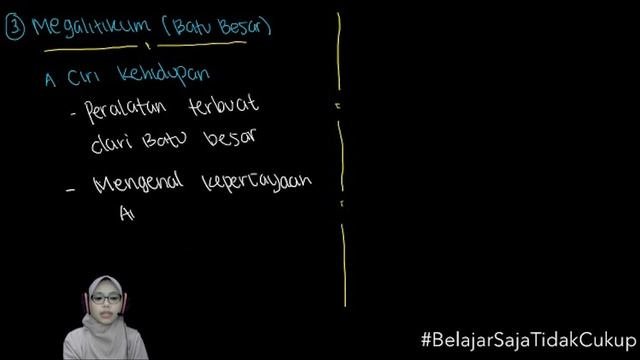 ③ Megalitikum (Batu Besar)
A Ciri Kehidupan
- Peralatan terbuat
dari Batu besar
- Mengenal kepercayaan
An
#BelajarSajaTidakCukup